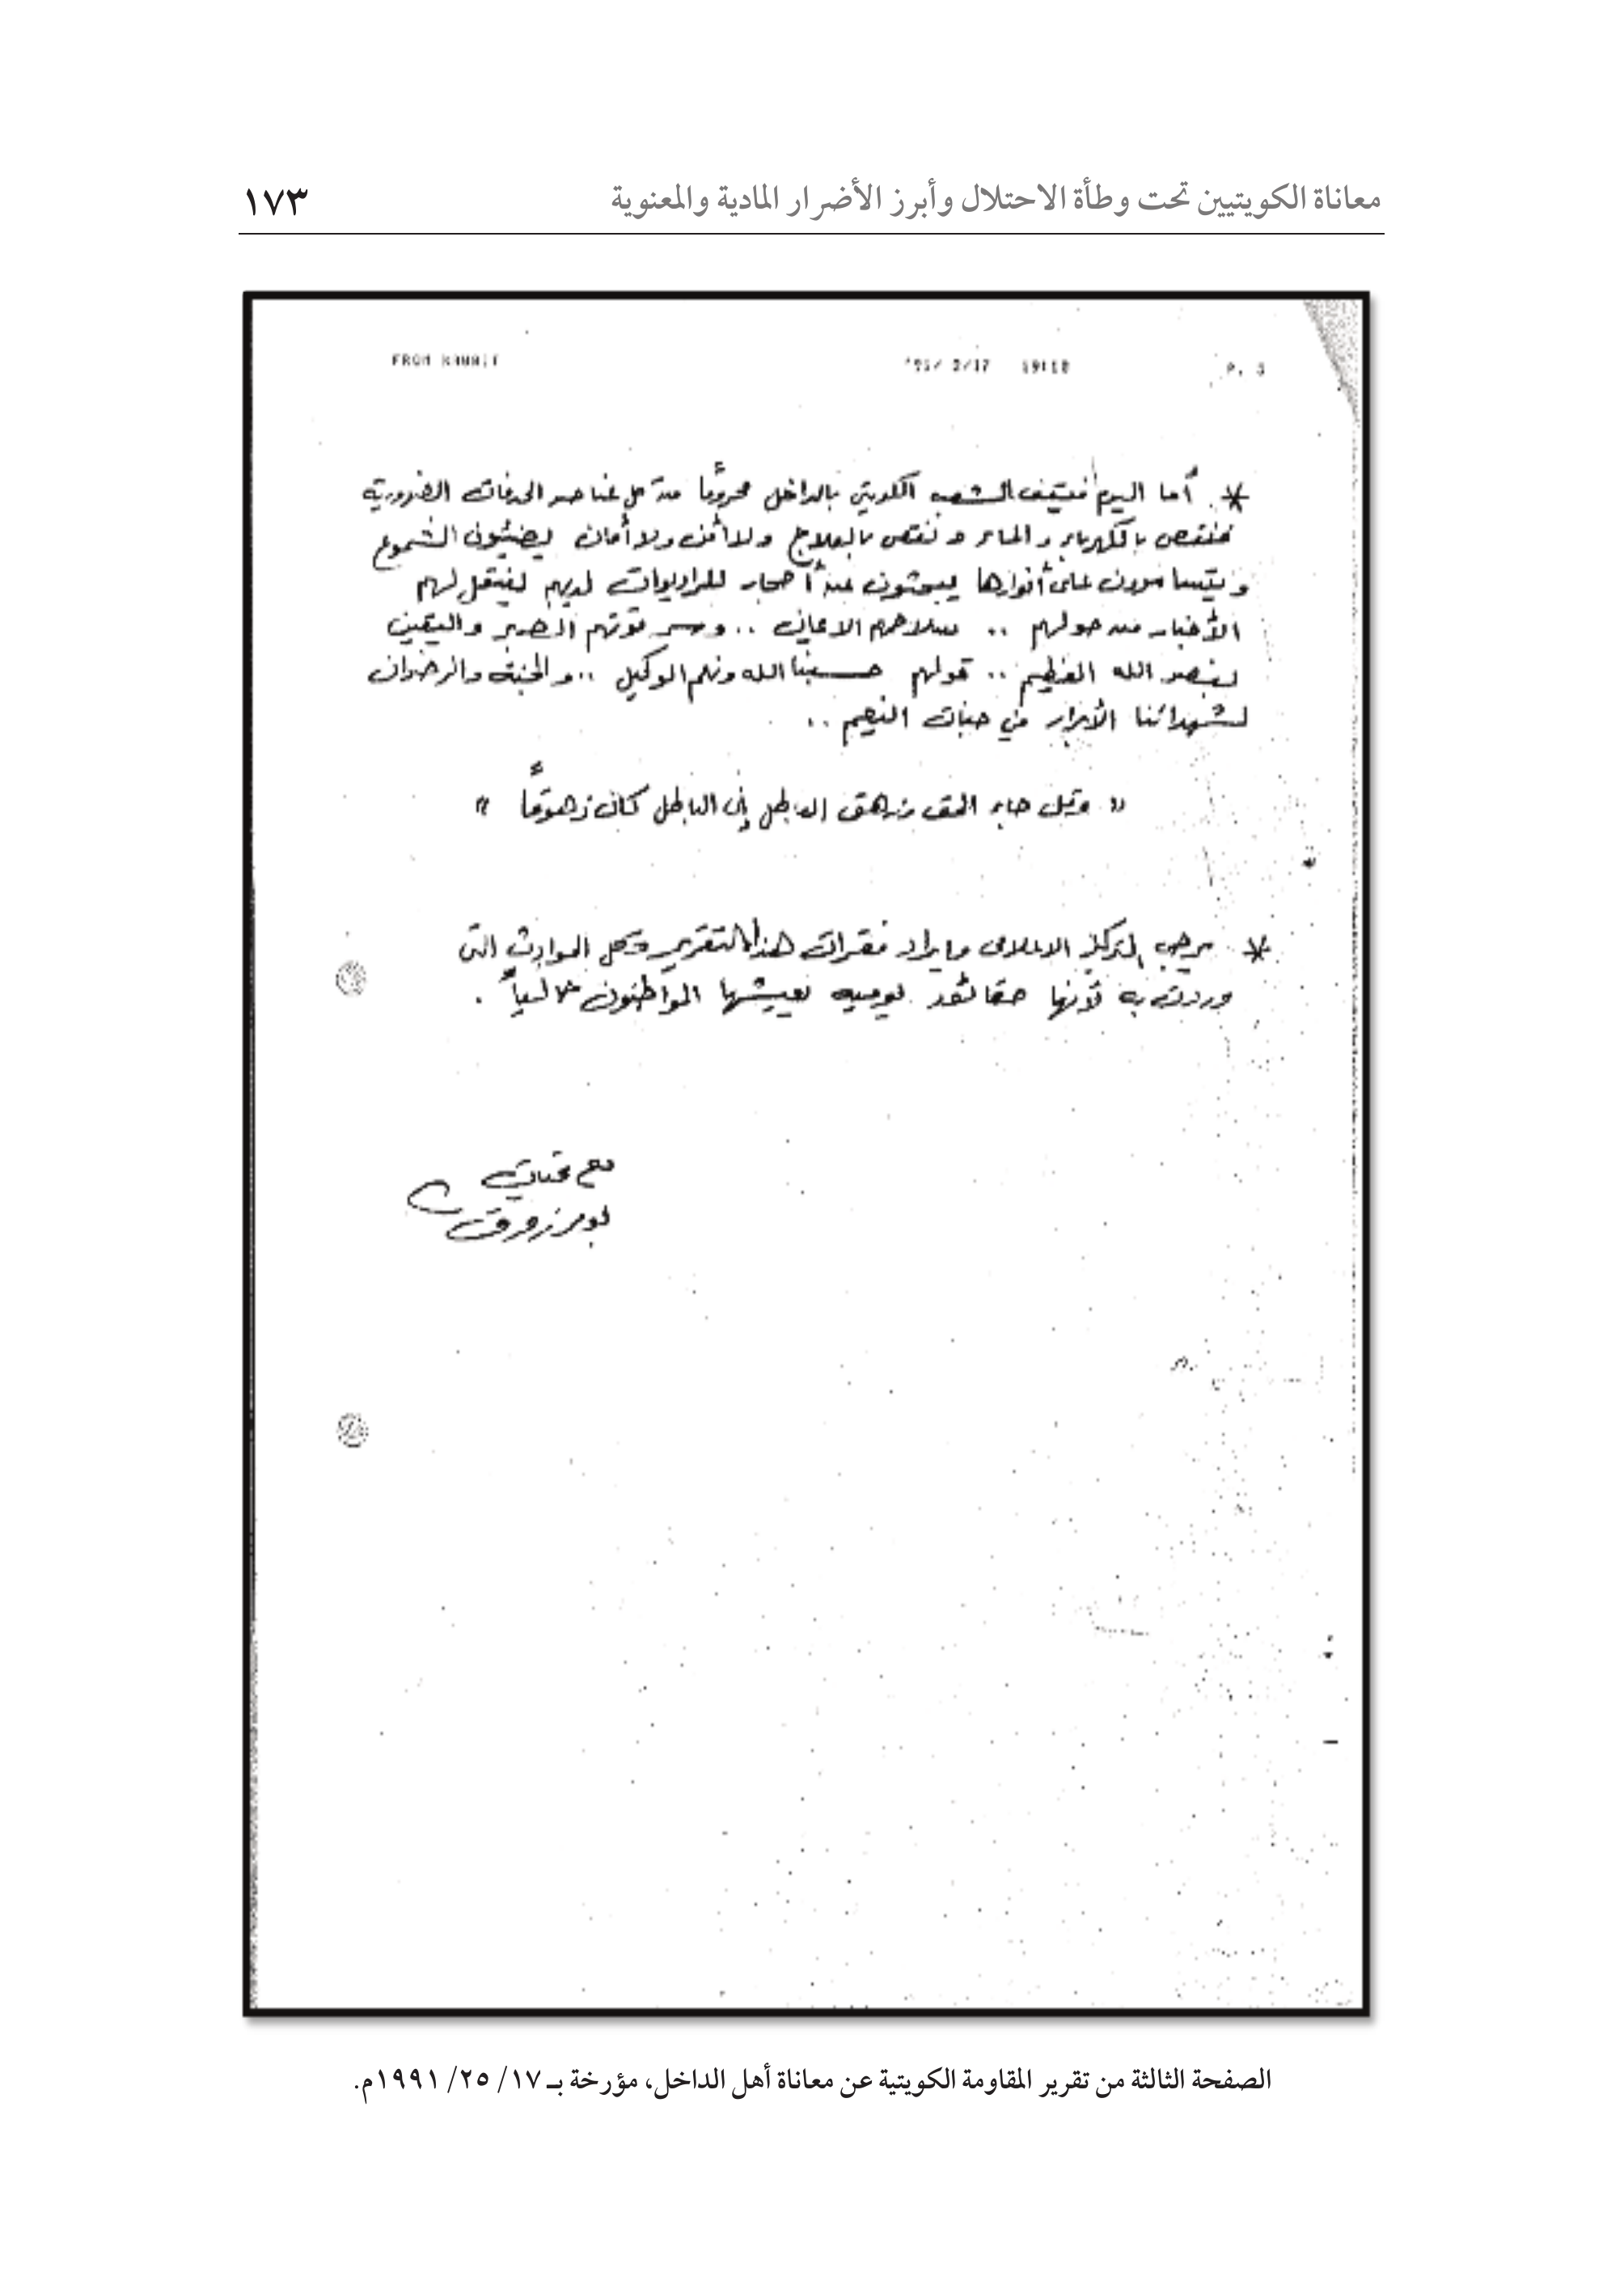 معاناة الكويتيين تحت وطأة الاحتلال وأبرز الأضرار المادية والمعنوية ١٧٣
FROM KUWAIT '91/ 2/17 19:18 P. 3
* أما اليوم فيعيش الشعب الكويتي بالداخل محروماً من كل عناصر الخدمات الضرورية
فنقص بالكهرباء والماء ونقص بالعلاج ولا أمن ولا أمان يضيئون الشموع
ويتسامرون على أنوارها يبحثون عن أحجار للراديوات لديهم لينقل لهم
الأخبار من حولهم .. سلاحهم الايمان .. وسر قوتهم الصبر واليقين
بنصر الله العظيم .. قولهم حسبنا الله ونعم الوكيل .. والجنة والرضوان
لشهدائنا الأبرار في جنات النعيم ..
" وقل جاء الحق وزهق الباطل إن الباطل كان زهوقاً "
* يرجى التركيز الاعلامى وايراد فقرات هذا التقرير وكل الحوادث التى
وردت به لأنها حقائق يوميه يعيشها المواطنون حالياً .
مع تحياتي
بومرزوق
الصفحة الثالثة من تقرير المقاومة الكويتية عن معاناة أهل الداخل، مؤرخة بـ ١٧/ ٢٥/ ١٩٩١م.